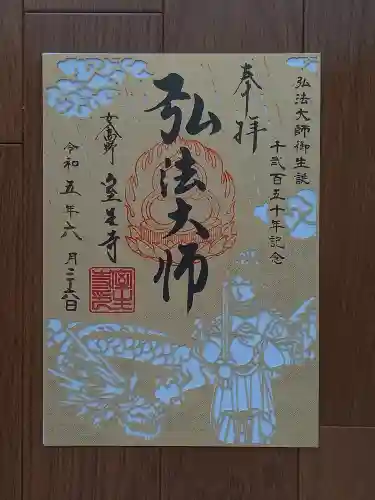 弘法大師御生誕
千弐百五十年記念
奉拝
弘法大師
女人高野
室生寺
令和五年六月二十六日